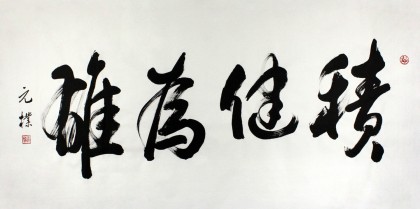 積健為雄
元檏